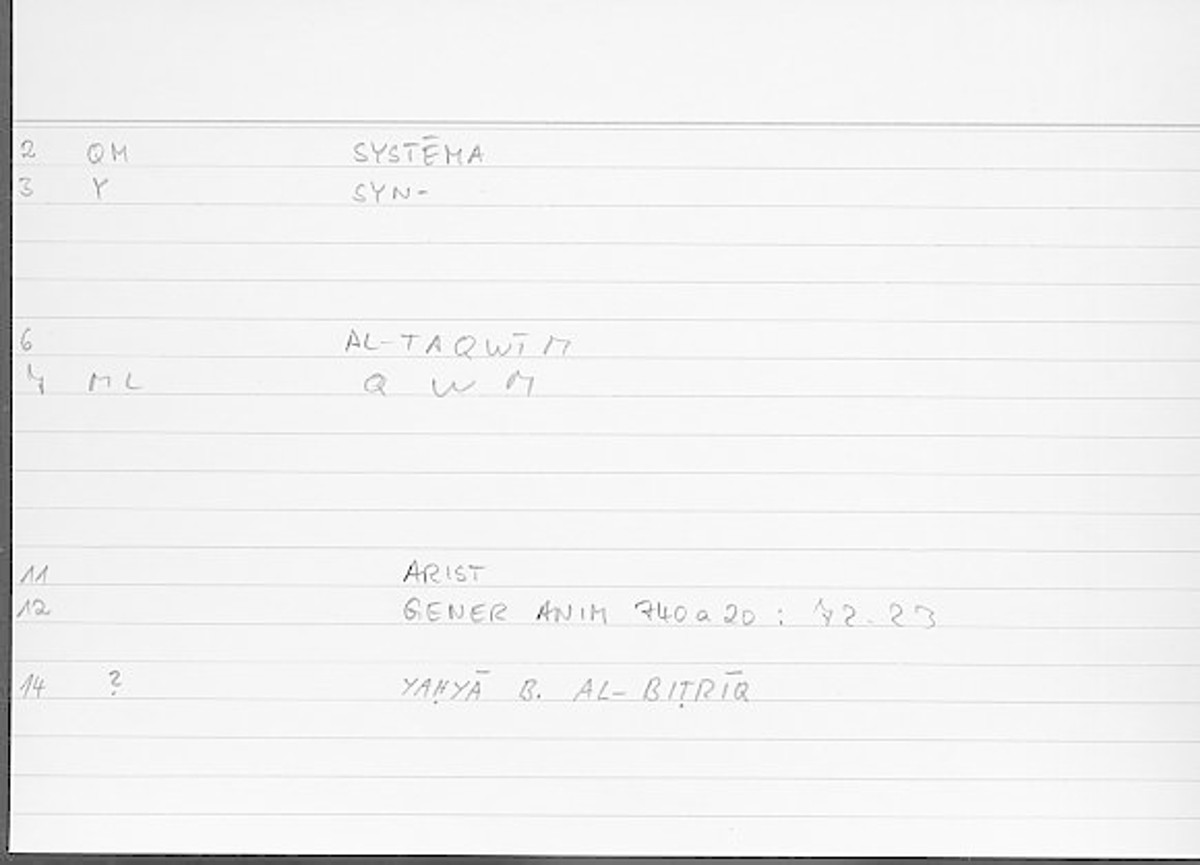 2 QM SYSTĒMA
3 Y SYN-
6 AL-TAQWĪM
7 ML Q W M
11 ARIST
12 GENER ANIM 740a20 : 72.23
14 ? YAḤYĀ B. AL-BIṬRĪQ